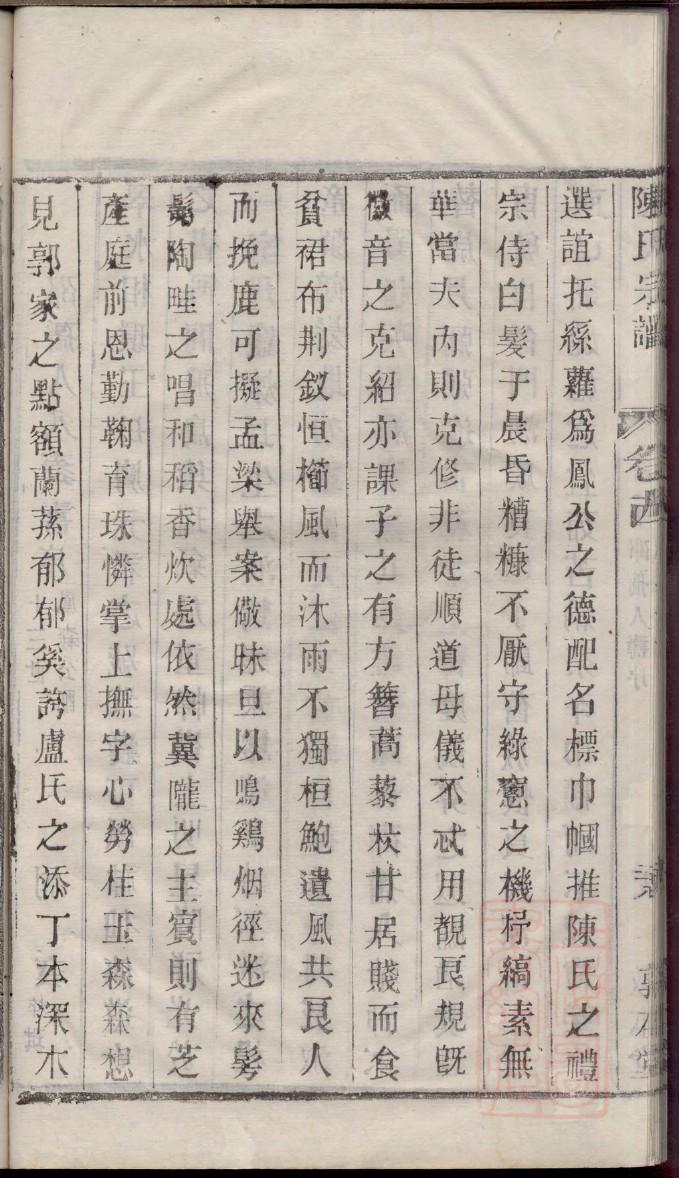 陳氏宗譜 卷 敦本堂
選誼托絲蘿爲鳳公之德配名標巾幗推陳氏之禮
宗侍白髮于晨昏糟糠不厭守綠窻之機杼縞素無
華當夫內則克修非徒順道母儀不忒用覩良規旣
徽音之克紹亦課子之有方簪蒿藜杖甘居賤而食
貧裙布荆釵恒櫛風而沐雨不獨桓鮑遺風共良人
而挽鹿可擬孟梁舉案儆昧旦以鳴鷄烟徑迷來髣
髴陶畦之唱和稻香炊處依然冀隴之主賓則有芝
產庭前恩勤鞠育珠憐掌上撫字心勞桂玉森森想
見郭家之點額蘭蓀郁郁奚誇盧氏之添丁本深木